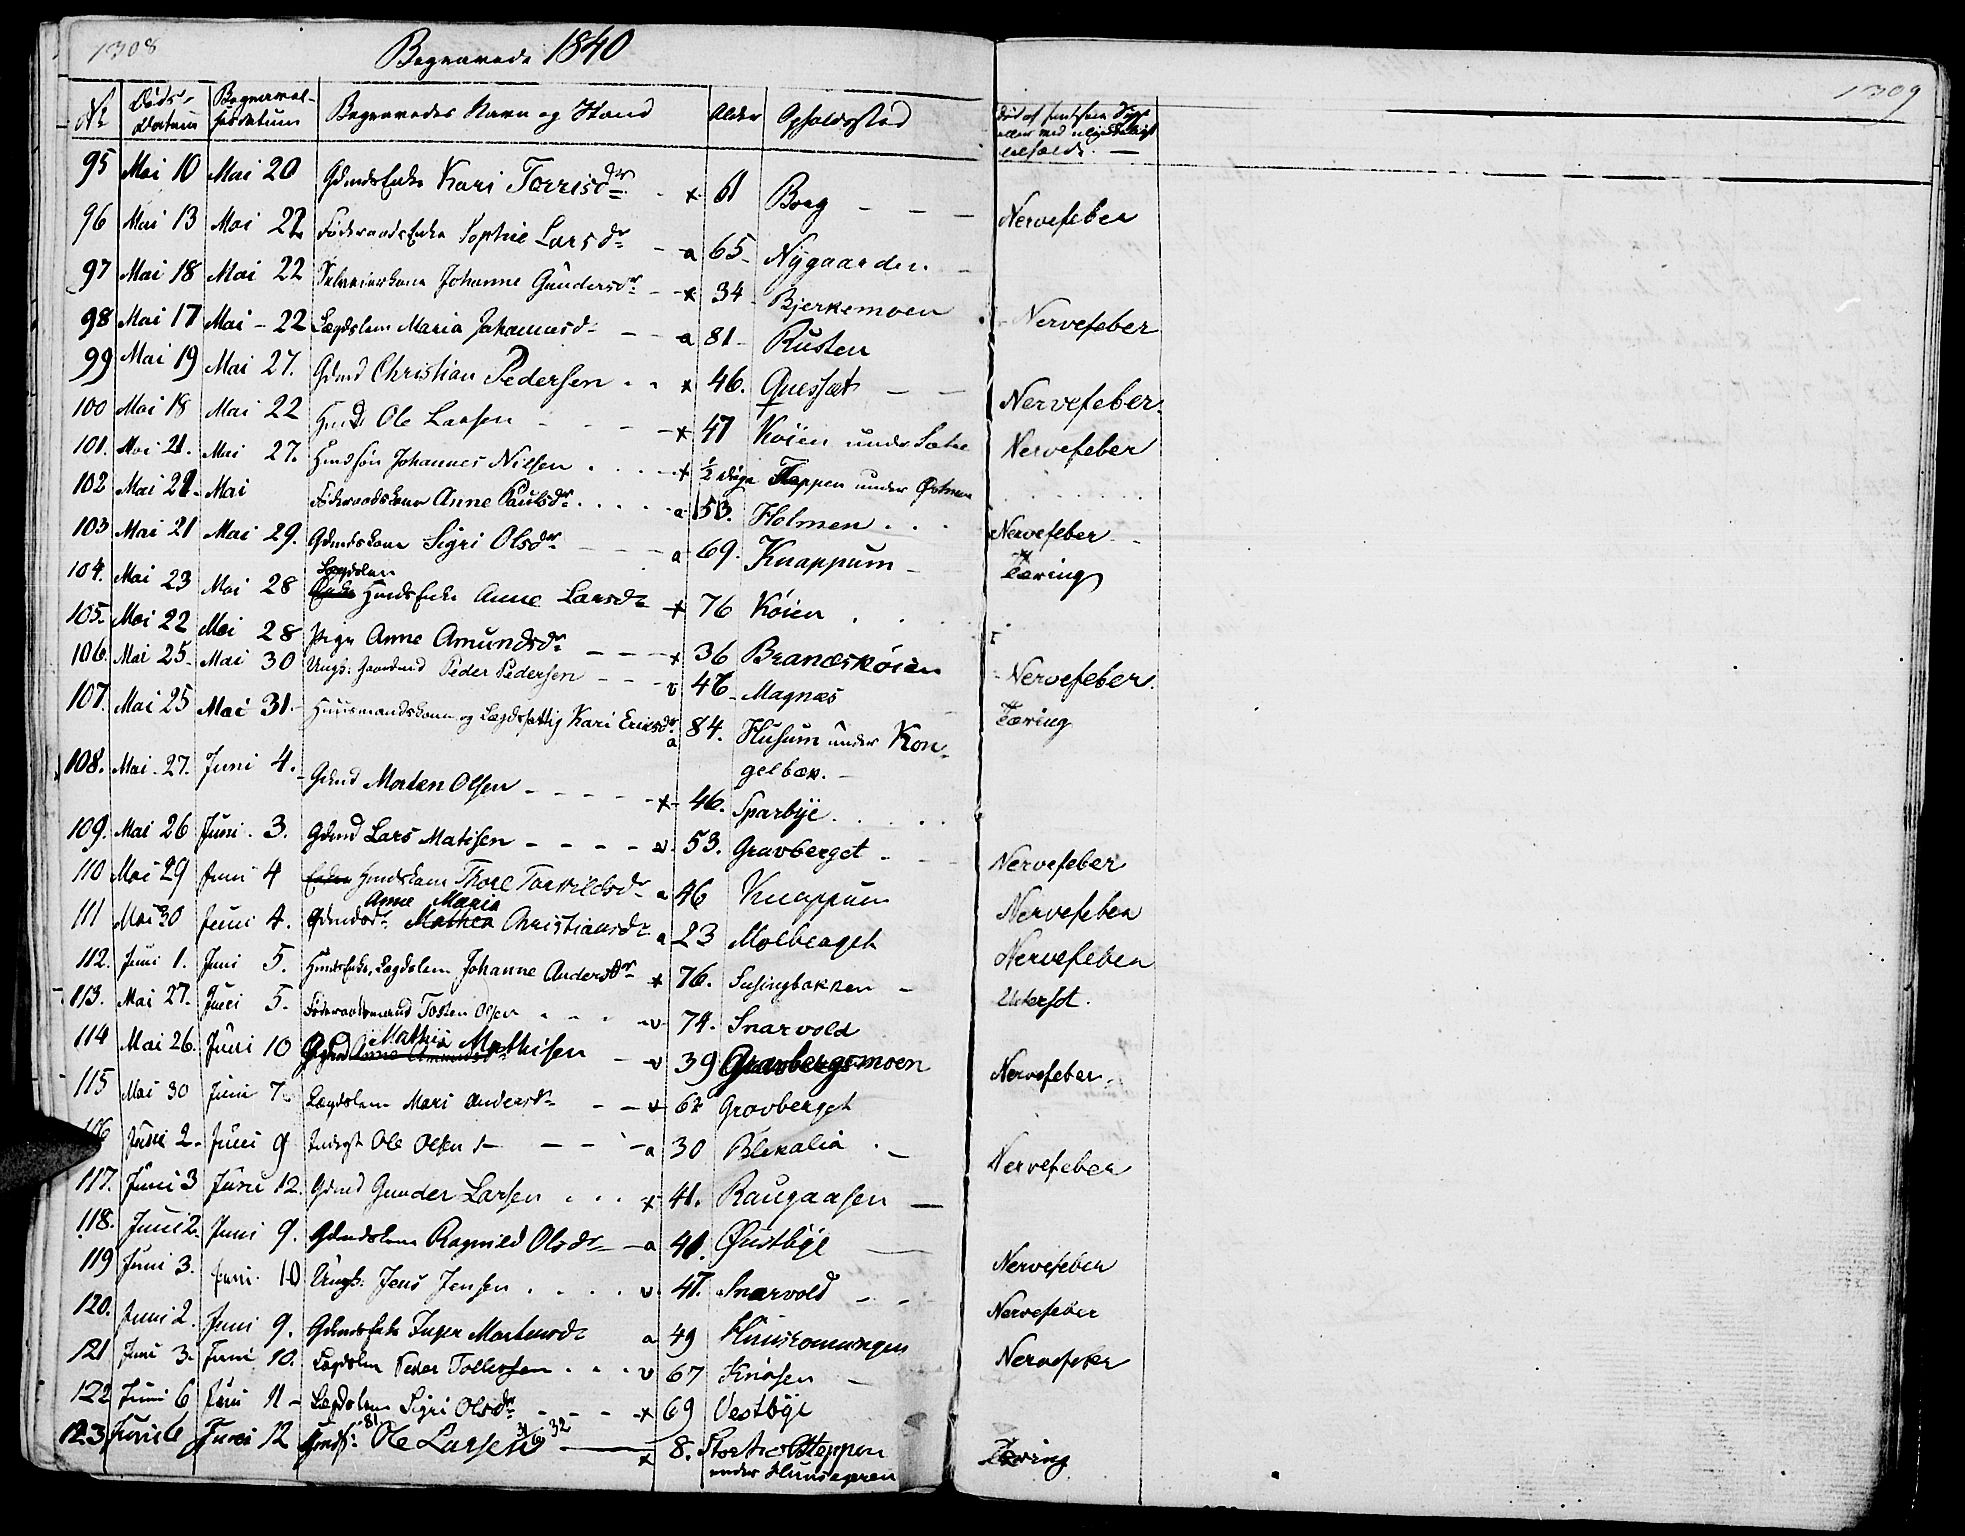 1308
Begravede 1840
1309
No Døds-Datum Begravelsesdatum Begravedes Navn og Stand Alder Opholdssted Død af
95 Mai 10 Mai 20 Gdmdsenke Kari Torrisdr x 61 Borg Nervefeber
96 Mai 13 Mai 22 Føderaadsenke Sophie Larsdr a 65 Nÿgaarden
97 Mai 18 Mai 22 Johanne Gundersdr x 34 Bjerkemoen Nervefeber
98 Mai 17 Mai 22 Lægdslem Maria Johannesdr a 81 Rusten
99 Mai 19 Mai 27. Gdmd Christian Pedersen x 46. Quessæt Nervefeber
100 Mai 18 Mai 22 Hmd Ole Larsen x 47 Køien under Nervefeber
101. Mai 21. Mai 27. Hmdsøn Johannes Nilsen x ½ døgn under
102 Mai 21 Mai Føderaadskone Anne Paulsdr a 53. Holmen Nervefeber
103 Mai 21 Mai 29. Gdmdskone Sigri Olsdr a 69. Knappum Tæring
104. Mai 23 Mai 28 Lægdslem Hmdsenke Anne Larsdr x 76 Køien
105. Mai 22 Mai 28 Pige Anne Amundsdr x 36 Branæskøien Nervefeber
106 Mai 25 Mai 30 Ungk: Peder Pedersen v 46 Magnæs Tæring
107. Mai 25 Mai 31. Huusmandskone og Lægdsfattig Kari Eriksdr a 84. Husum under Kongelbæk.
108. Mai 27. Juni 4. Gdmd Morten Olsen x 46. Sparbÿe
109. Mai 26 Juni 3. Gdmd Lars Matisen v 53. Gravberget Nervefeber
110 Mai 29 Juni 4 Hmdskone Thore Torkildsdr a 46 Knappum Nervefeber
111 Mai 30 Juni 4. Gdmdsdr Anne Maria Mathea Christiansdr a 23 Molberget Nervefeber
112. Juni 1. Juni 5. Hmdsenke, Lægdslem Johanne Andersdr x 76. Susingbakken
113. Mai 27. Juni 5. Føderaadsmand Tosten Olsen v 74. Snarvold
114 Mai 26. Juni 10 Mathis Mathisen v 39 Gravbergsmoen Nervefeber
115 Mai 30 Juni 7 Lægdslem Mari Andersdr v 62 Gravberget
116 Juni 2. Juni 9 Inderst Ole Olsen a 30 Blekalia Nervefeber
117. Juni 3 Juni 12. Gdmd Gunder Larsen x 41. Raugaasen
118. Juni 2. Juni 9. Ragnild Olsdr a 41. Østbÿe Nervefeber
119 Juni 3. Juni 10 Ungk: Jens Jensen v 47. Snarvold Nervefeber
120. Juni 2. Juni 9. Gdmdsenke Inger Mortensdr a 49 Nervefeber
121 Juni 3. Juni 10. Lægdslem Peder Tollefsen v 67 Knøsen
122 Juni 6 Juni 11 Lægdslem Sigri Olsdr x 69 Vestbÿe
123 Juni 6 Juni 12 Ole Larsen x 8. under Tæring